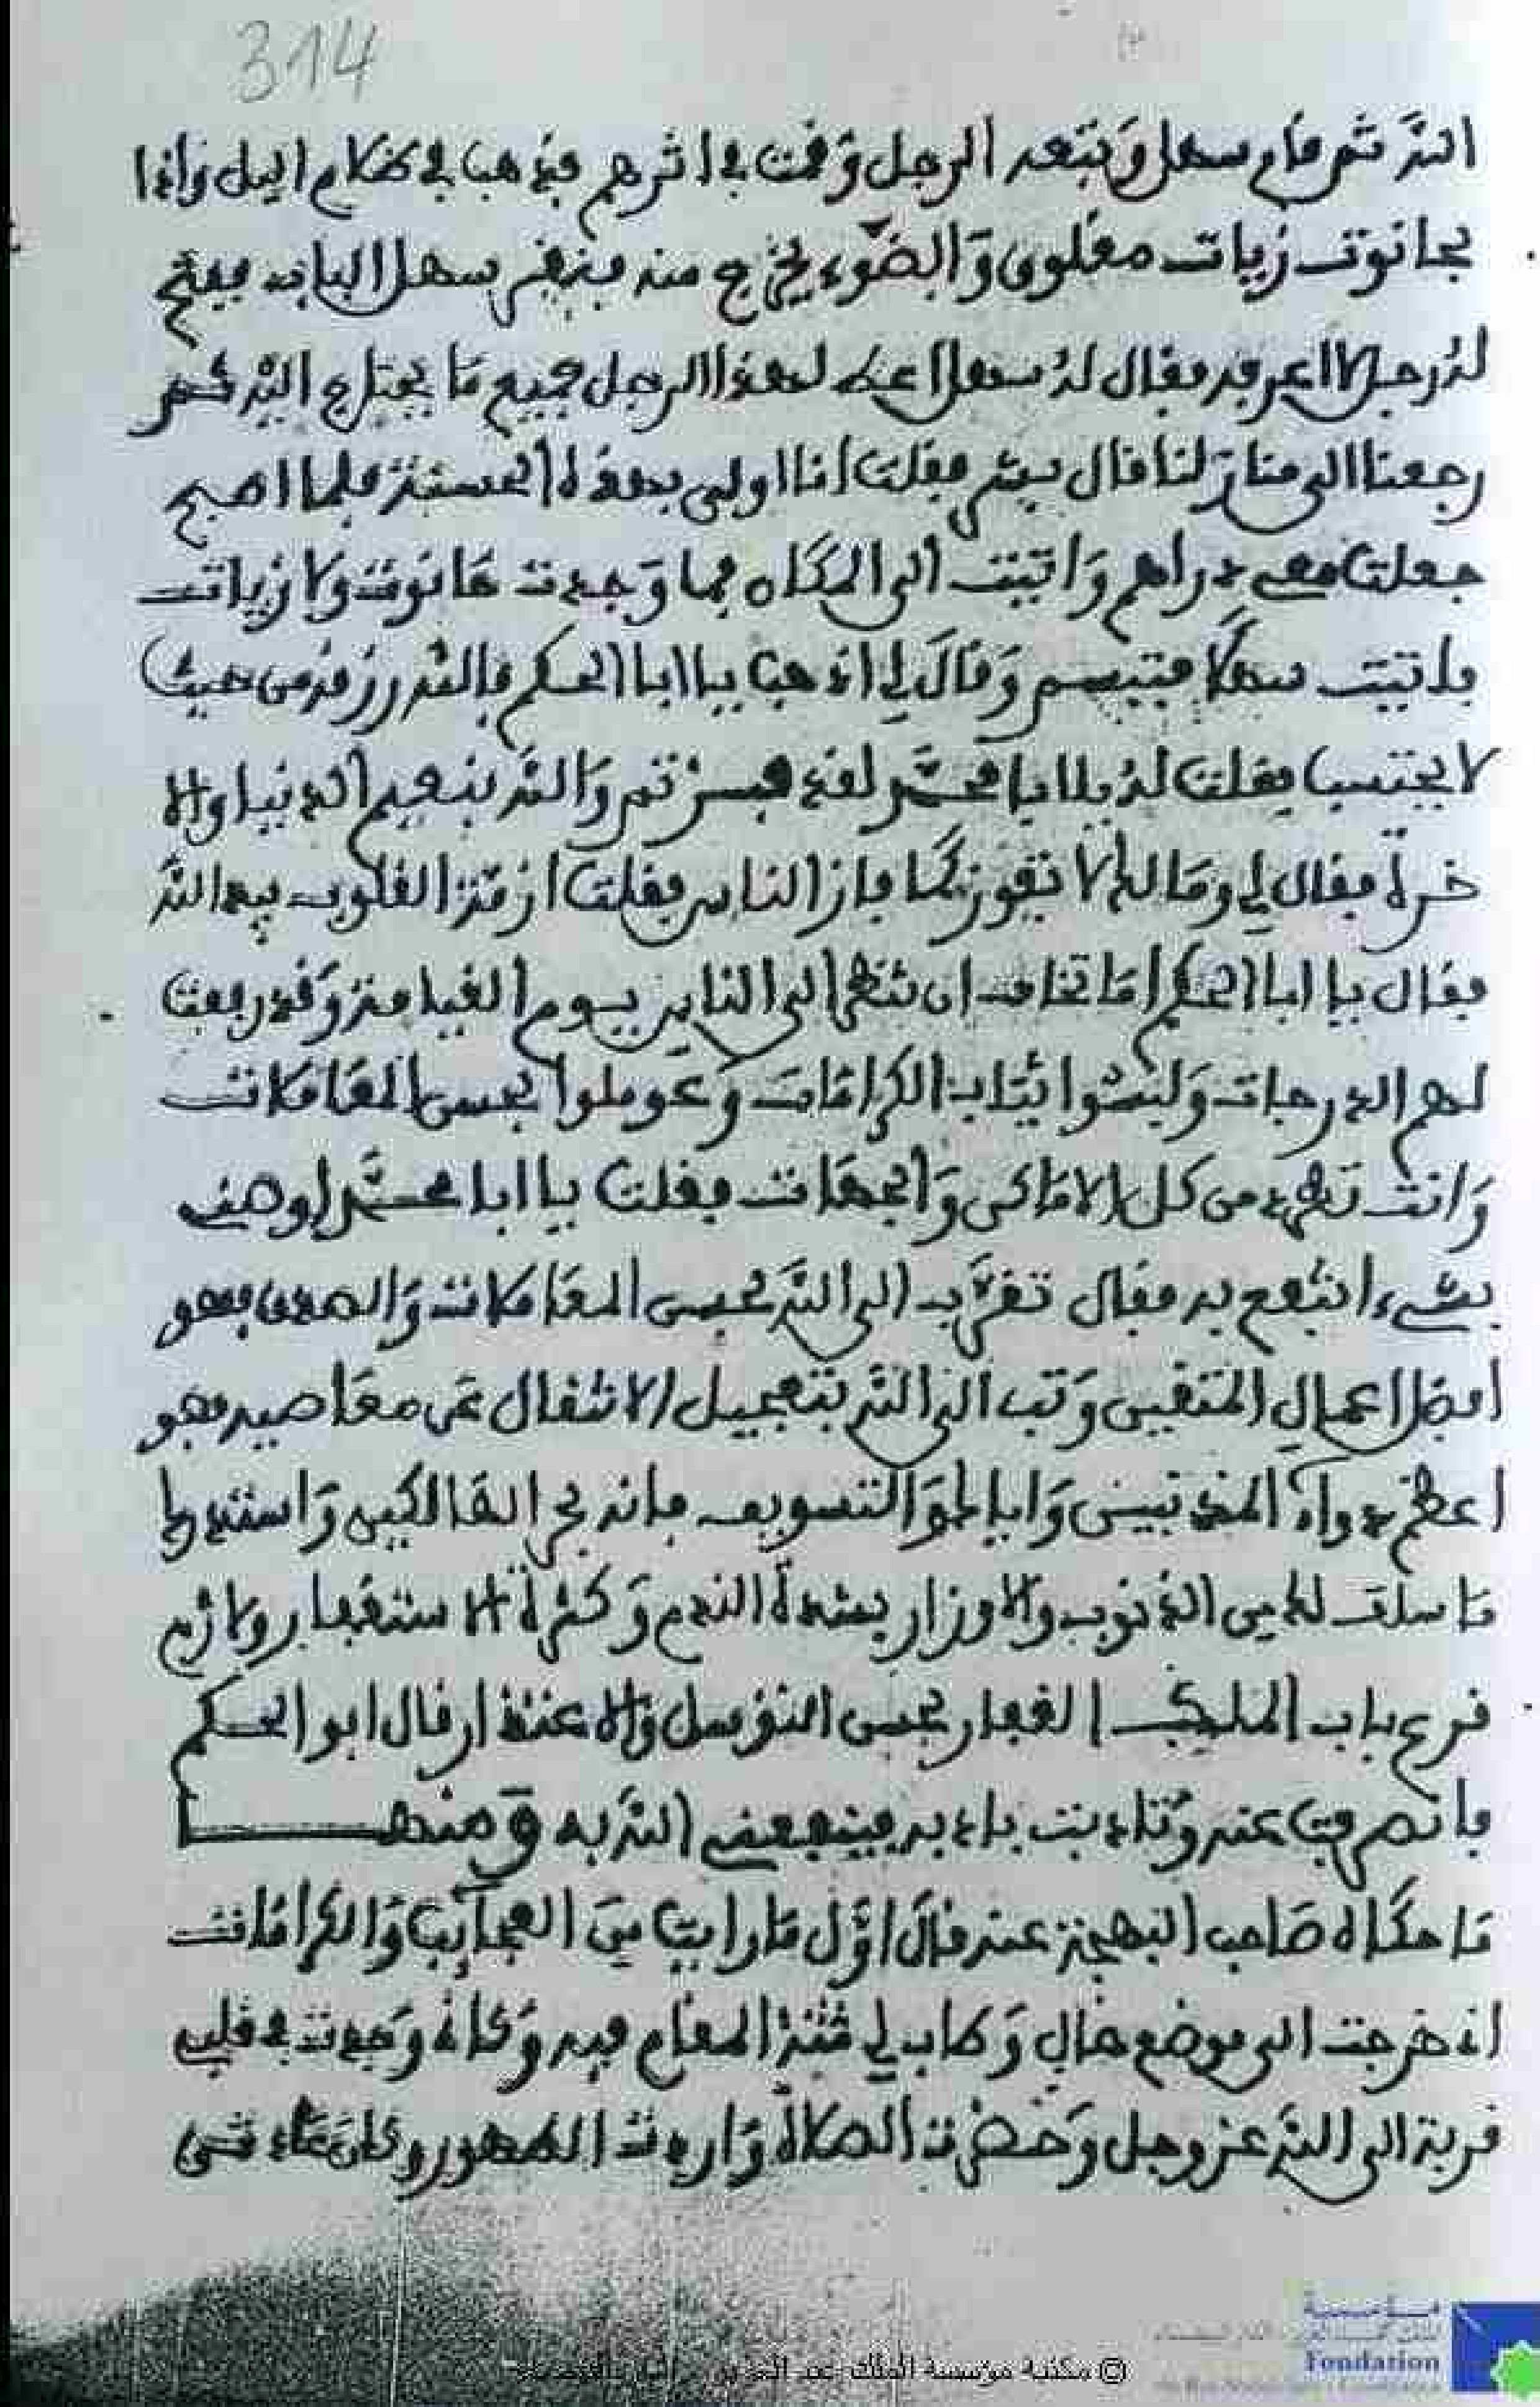 314
الله ثم قام سهل وتبعه الرجل وقمت في اثرهم فذهبا في ظلام اليل واذا
بحانوت زيات مغلوق والضوء يخرج منه فنقر سهل الباب ففتح
له رجل لا اعرفه فقال له سهل اعط لهذا الرجل جميع ما يحتاج اليه ثم
رجعنا الى منازلنا قال فقلت انا اولى بهذه الحسنة فلما اصبح
جعلت معي دراهم واتيت الى المكان فما وجدت حانوت ولا زيات
فاتيت سهلا فتبسم وقال لي اذهب يا ابا الحكم فالله رزقه من حيث
لا يحتسب فقلت له يا ابا محمد لقد فزتم والله بنعيم الدنيا والا
خرة فقال لي وما لك لا تفوز كما فاز الناس فقلت ازمة القلوب بيد الله
فقال يا ابا الحكم اما تخاف ان تنظر الى الناس يوم القيامة وقد رفعت
لهم الدرجات ولبسوا ثياب الكرامات وعوملوا بحسن المعاملات
وانت تطرد من كل الاماكن والجهات فقلت يا ابا محمد اوصني
بشيء انتفع به فقال تقرب الى الله بحسن المعاملات والصدق فهو
افضل اعمال المتقين وتب الى الله بتعجيل الانتقال عن معاصيه فهو
اعظم دواء المذنبين واياك والتسويف فانه بحر الهالكين واستدرك
ما سلف لك من الذنوب والاوزار بشدة الندم وكثرة الاستغفار ولازم
قرع باب الملك الغفار بحسن التوسل والاعتذار قال ابو الحكم
فانصرفت عنه وتادبت بادبه فنفعني الله به ومنها
ما حكاه صاحب البهجة عنه قال اول ما رايت من العجايب والكرامات
اني خرجت الى موضع خال وطاب لي المقام فيه وكاني وجدت في قلبي
قربة الى الله عز وجل وحضرت الصلاة واردت الطهور وكان عادتي
© مكتبة مؤسسة الملك عبد العزيز
مؤسسة
Fondation